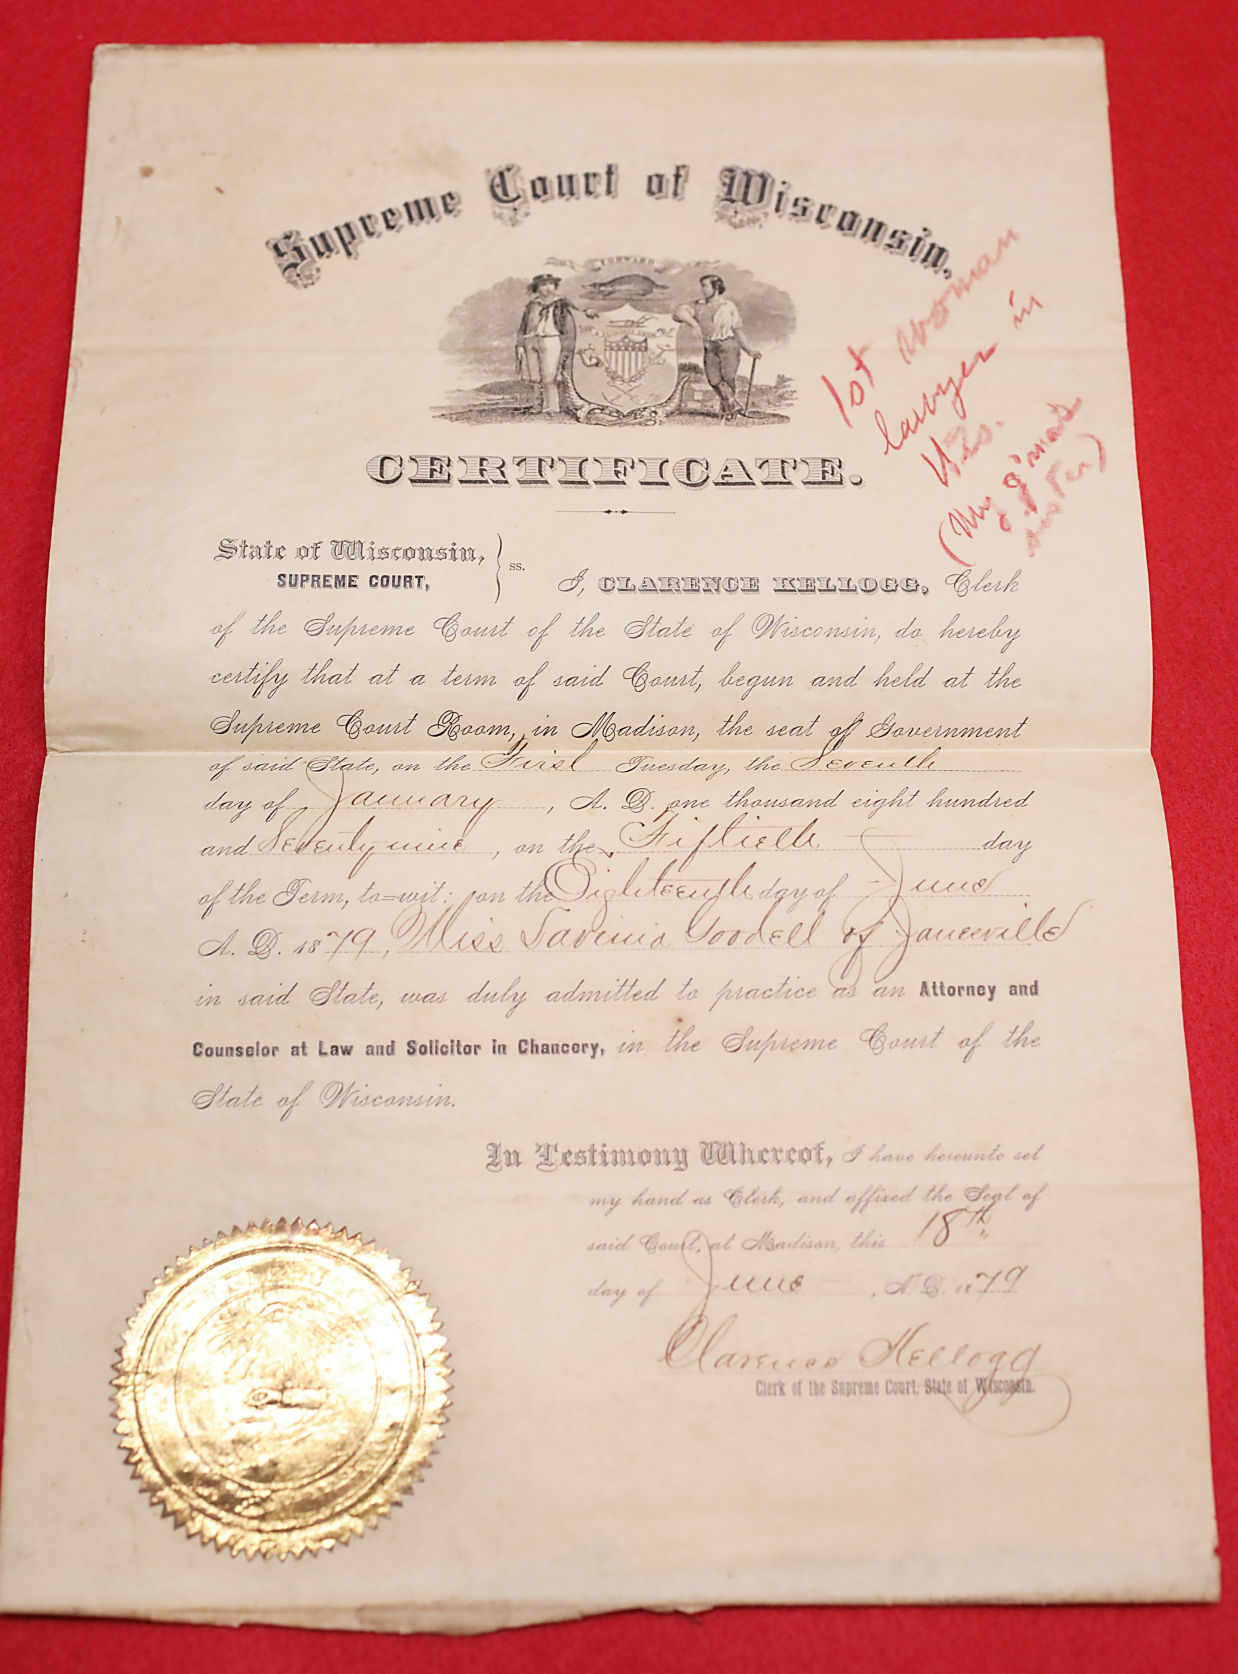 Supreme Court of Wisconsin.
FORWARD
1st woman
lawyer in
Wis.
(My g'ma's
sister)
CERTIFICATE.
State of Wisconsin,
SUPREME COURT,
ss.
I, CLARENCE KELLOGG, Clerk
of the Supreme Court of the State of Wisconsin, do hereby
certify that at a term of said Court, begun and held at the
Supreme Court Room, in Madison, the seat of Government
of said State, on the First Tuesday, the Seventh
day of January, A. D. one thousand eight hundred
and Seventy nine, on the Fiftieth day
of the Term, to=wit: on the Eighteenth day of June
A. D. 1879, Miss Lavinia Goodell of Janesville
in said State, was duly admitted to practice as an Attorney and
Counselor at Law and Solicitor in Chancery, in the Supreme Court of the
State of Wisconsin.
In Testimony Whereof, I have hereunto set
my hand as Clerk, and affixed the Seal of
said Court, at Madison, this 18th
day of June, A. D. 1879
Clarence Kellogg
Clerk of the Supreme Court, State of Wisconsin.